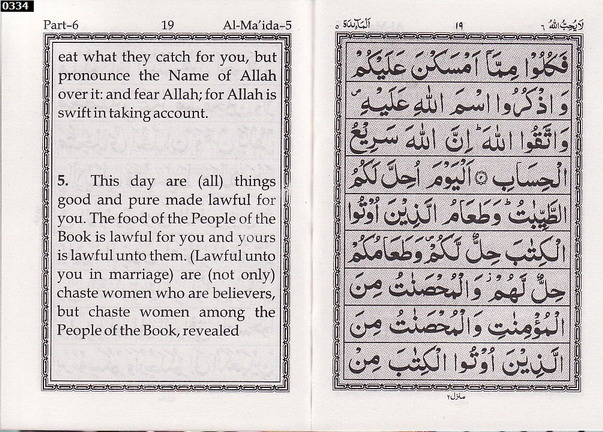 0334
Part-6 19 Al-Ma'ida-5
eat what they catch for you, but
pronounce the Name of Allah
over it: and fear Allah; for Allah is
swift in taking account.
5. This day are (all) things
good and pure made lawful for
you. The food of the People of the
Book is lawful for you and yours
is lawful unto them. (Lawful unto
you in marriage) are (not only)
chaste women who are believers,
but chaste women among the
People of the Book, revealed
لَا يُحِبُّ اللهُ ٦ ١٩ اَلْمَآئِدَة ٥
فَكُلُوْا مِمَّاۤ اَمْسَكْنَ عَلَيْكُمْ
وَ اذْكُرُوا اسْمَ اللهِ عَلَيْهِ ۪
وَ اتَّقُوا اللهَ ؕ اِنَّ اللهَ سَرِيْعُ
الْحِسَابِ ۝۴ اَلْيَوْمَ اُحِلَّ لَكُمُ
الطَّيِّبٰتُ ؕ وَ طَعَامُ الَّذِيْنَ اُوْتُوا
الْكِتٰبَ حِلٌّ لَّكُمْ ۪ وَ طَعَامُكُمْ
حِلٌّ لَّهُمْ ؗ وَ الْمُحْصَنٰتُ مِنَ
الْمُؤْمِنٰتِ وَ الْمُحْصَنٰتُ مِنَ
الَّذِيْنَ اُوْتُوا الْكِتٰبَ مِنْ
منزل ٢